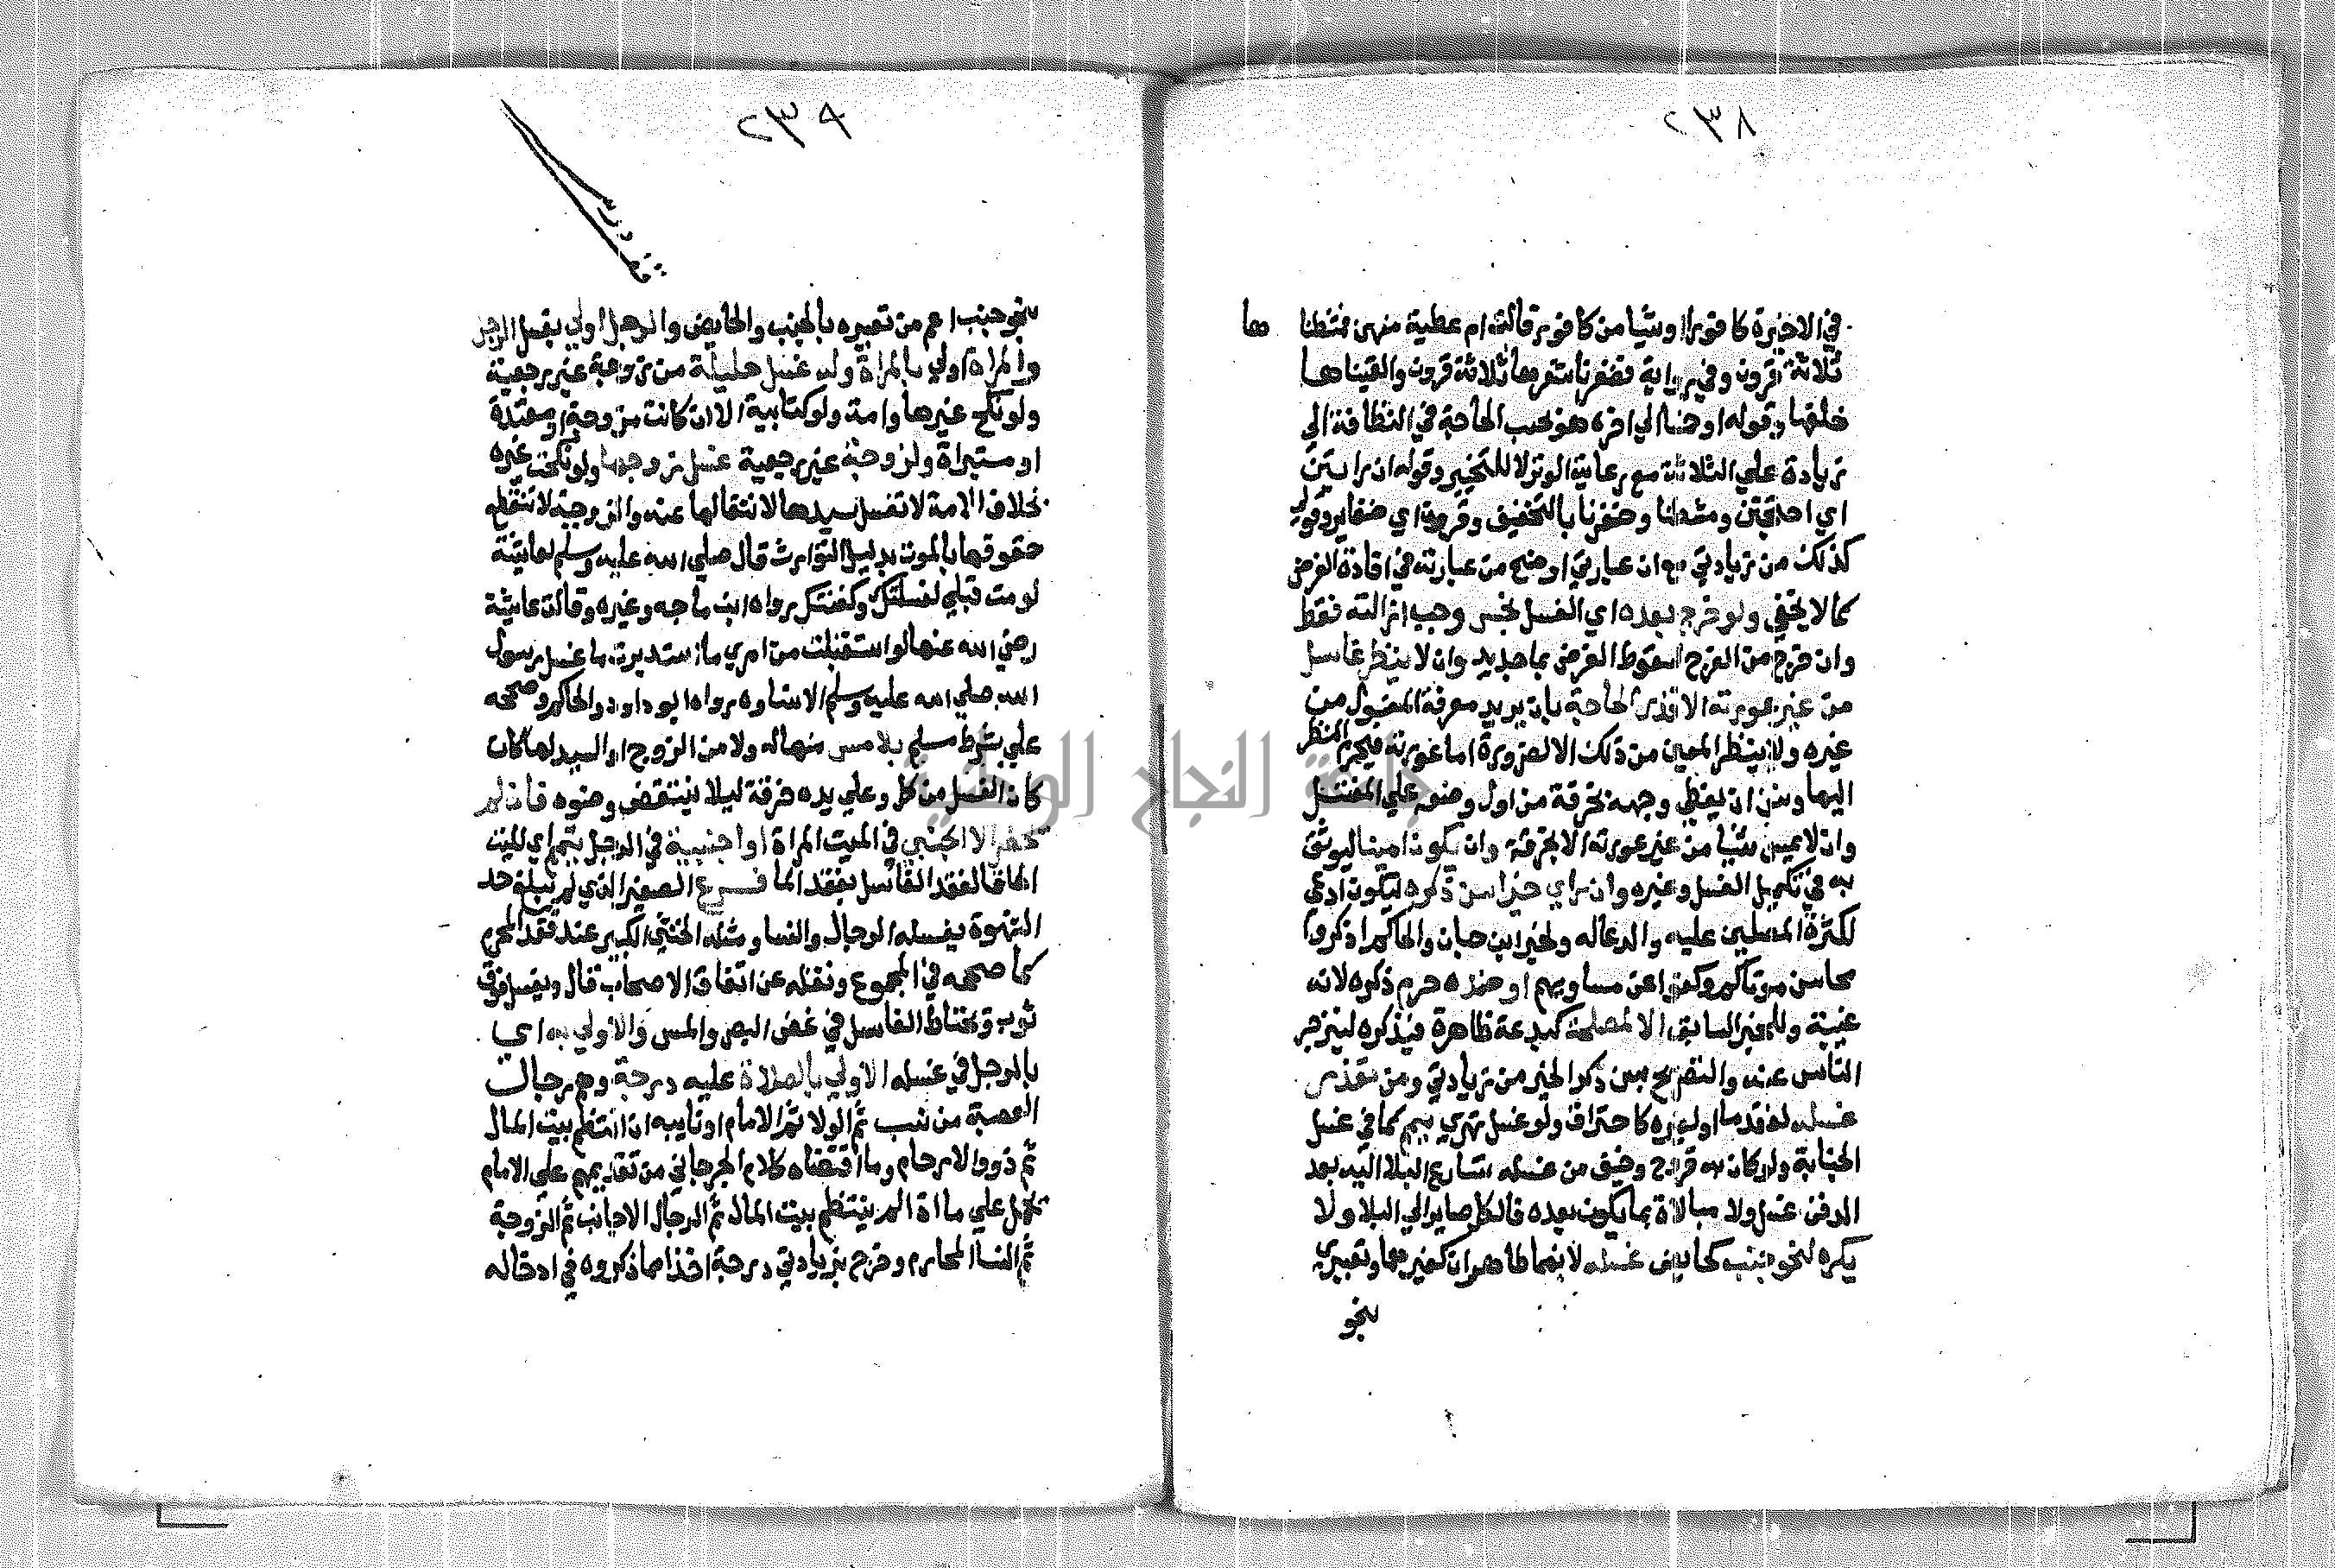 ٢٣٨
في الاخيرة كافورا او شيا من كافور قالت ام عطية منهن فمشطنا ها
ثلاثة قرون وفي رواية فضفرنا شعرها ثلاثة قرون والقيناها
خلفها وقوله او خمسا الي اخره هو بحسب الحاجة في النظافة الي
زيادة علي الثلاثة مع رعاية الوتر لا للتخيير وقوله ان رايتن
اي احتجتن ومشطنا وضفرنا بالتخفيف وقرون اي ضفاير وقولي
كذلك من زيادتي مع ان عبارتي اوضح من عبارته في افادة الغرض
كما لا يخفي ولو خرج بعده اي الغسل نجس وجب ازالته فقط
وان خرج من الفرج لسقوط الفرض بما جديد وان لا ينظر غاسل
من غير عورته الا قدر الحاجة بان يريد معرفة المغسول من
غيره ولا ينظر المعين من ذلك الا لضرورة اما عورته فيحرم النظر
اليها وسن ان يغطي وجهه بخرقة من اول وضعه علي المغتسل
وان لا يمس شيا من غير عورته الا بخرقة وان يكون امينا ليوثق
به في تكميل الغسل وغيره وان راي خيرا سن ذكره ليكون ادعي
لكثرة المصلين عليه والدعا له ولخبر ابن حبان والحاكم اذكروا
محاسن موتاكم وكفوا عن مساويهم او ضده حرم ذكره لانه
غيبة وللخبر السابق الا لمصلحة كبدعة ظاهرة فيذكره لينزجر
الناس عنه والتصريح بسن ذكر الخير من زيادتي ومن تعذر
غسله لفقد ما او لغيره كاحتراق ولو غسل تهري يمم كما في غسل
الجنابة ولو كان به قروح وخيف من غسله تسارع البلا اليه بعد
الدفن غسل ولا مبالاة بما يكون بعده فالكل صاير الي البلا ولا
يكره لنحو جنب كحايض غسله لانهما طاهران كغيرهما وتعبيري
بنحو
٢٣٩
بنحو جنب اعم من تعبيره بالجنب والحايض والرجل اولي بغسل الرجل
والمراة اولي بالمراة وله غسل حليلة من زوجة غير رجعية
ولو نكح غيرها وامة ولو كتابية الا ان كانت مزوجة او معتدة
او مستبراة ولزوجة غير رجعية غسل زوجها ولو نكحت غيره
بخلاف الامة لا تغسل سيدها لانتقالها عنه والزوجية لا تنقطع
حقوقها بالموت بدليل التوارث قال صلي الله عليه وسلم لعايشة
لو مت قبلي لغسلتك وكفنتك رواه ابن ماجه وغيره وقالت عايشة
رضي الله عنها لو استقبلت من امري ما استدبرت ما غسل رسول
الله صلي الله عليه وسلم الا نساوه رواه ابو داود والحاكم وصححه
علي شرط مسلم بلا مس منها له ولا من الزوج او السيد لها كان
كان الغسل من كل وعلي يده خرقة ليلا ينتقض وضوه فان لم
يحضر الا اجنبي في الميت المراة او اجنبية في الرجل يمم اي الميت
الحاقا لفقد الغاسل بفقد الما فــرع الصغير الذي لم يبلغ حد
الشهوة يغسله الرجال والنسا ومثله الخنثي الكبير عند فقد المحرم
كما صححه في المجموع ونقله عن اتفاق الاصحاب قال ويغسل فوق
ثوب ويحتاط الغاسل في غض البصر والمس والاولي به اي
بالرجل في غسله الاولي بالصلاة عليه درجة وهم رجال
العصبة من نسب ثم الولا ثم الامام او نايبه ان انتظم بيت المال
ثم ذووا الارحام وما اقتضاه كلام الجرجاني من تقديمهم علي الامام
تحمل علي ما اذا لم ينتظم بيت المال ثم الرجال الاجانب ثم الزوجة
ثم النسا المحارم وخرج بزيادتي درجة اخذا مما ذكروه في ادخاله
جامعة النجاح الوطنية